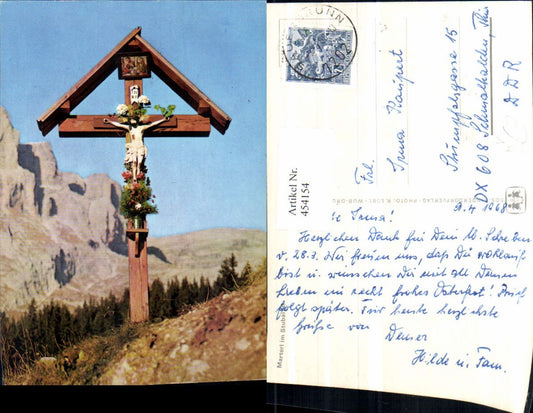 Artikel Nr.
454154
Frl.
Irma
Stumpfelsgasse 15
DX 608 Schmalkalden, Thür
DDR
9.4 1968
Irma!
Herzlichen Dank für Dein lb. Schreiben
v. 28.3. Wir freuen uns, daß Du wohlauf
bist u. wünschen Dir mit all Deinen
Lieben ein recht frohes Osterfest! Brief
folgt später. Für heute herzlichste
Grüße von Deiner
Hilde u. Fam.
Marterl im